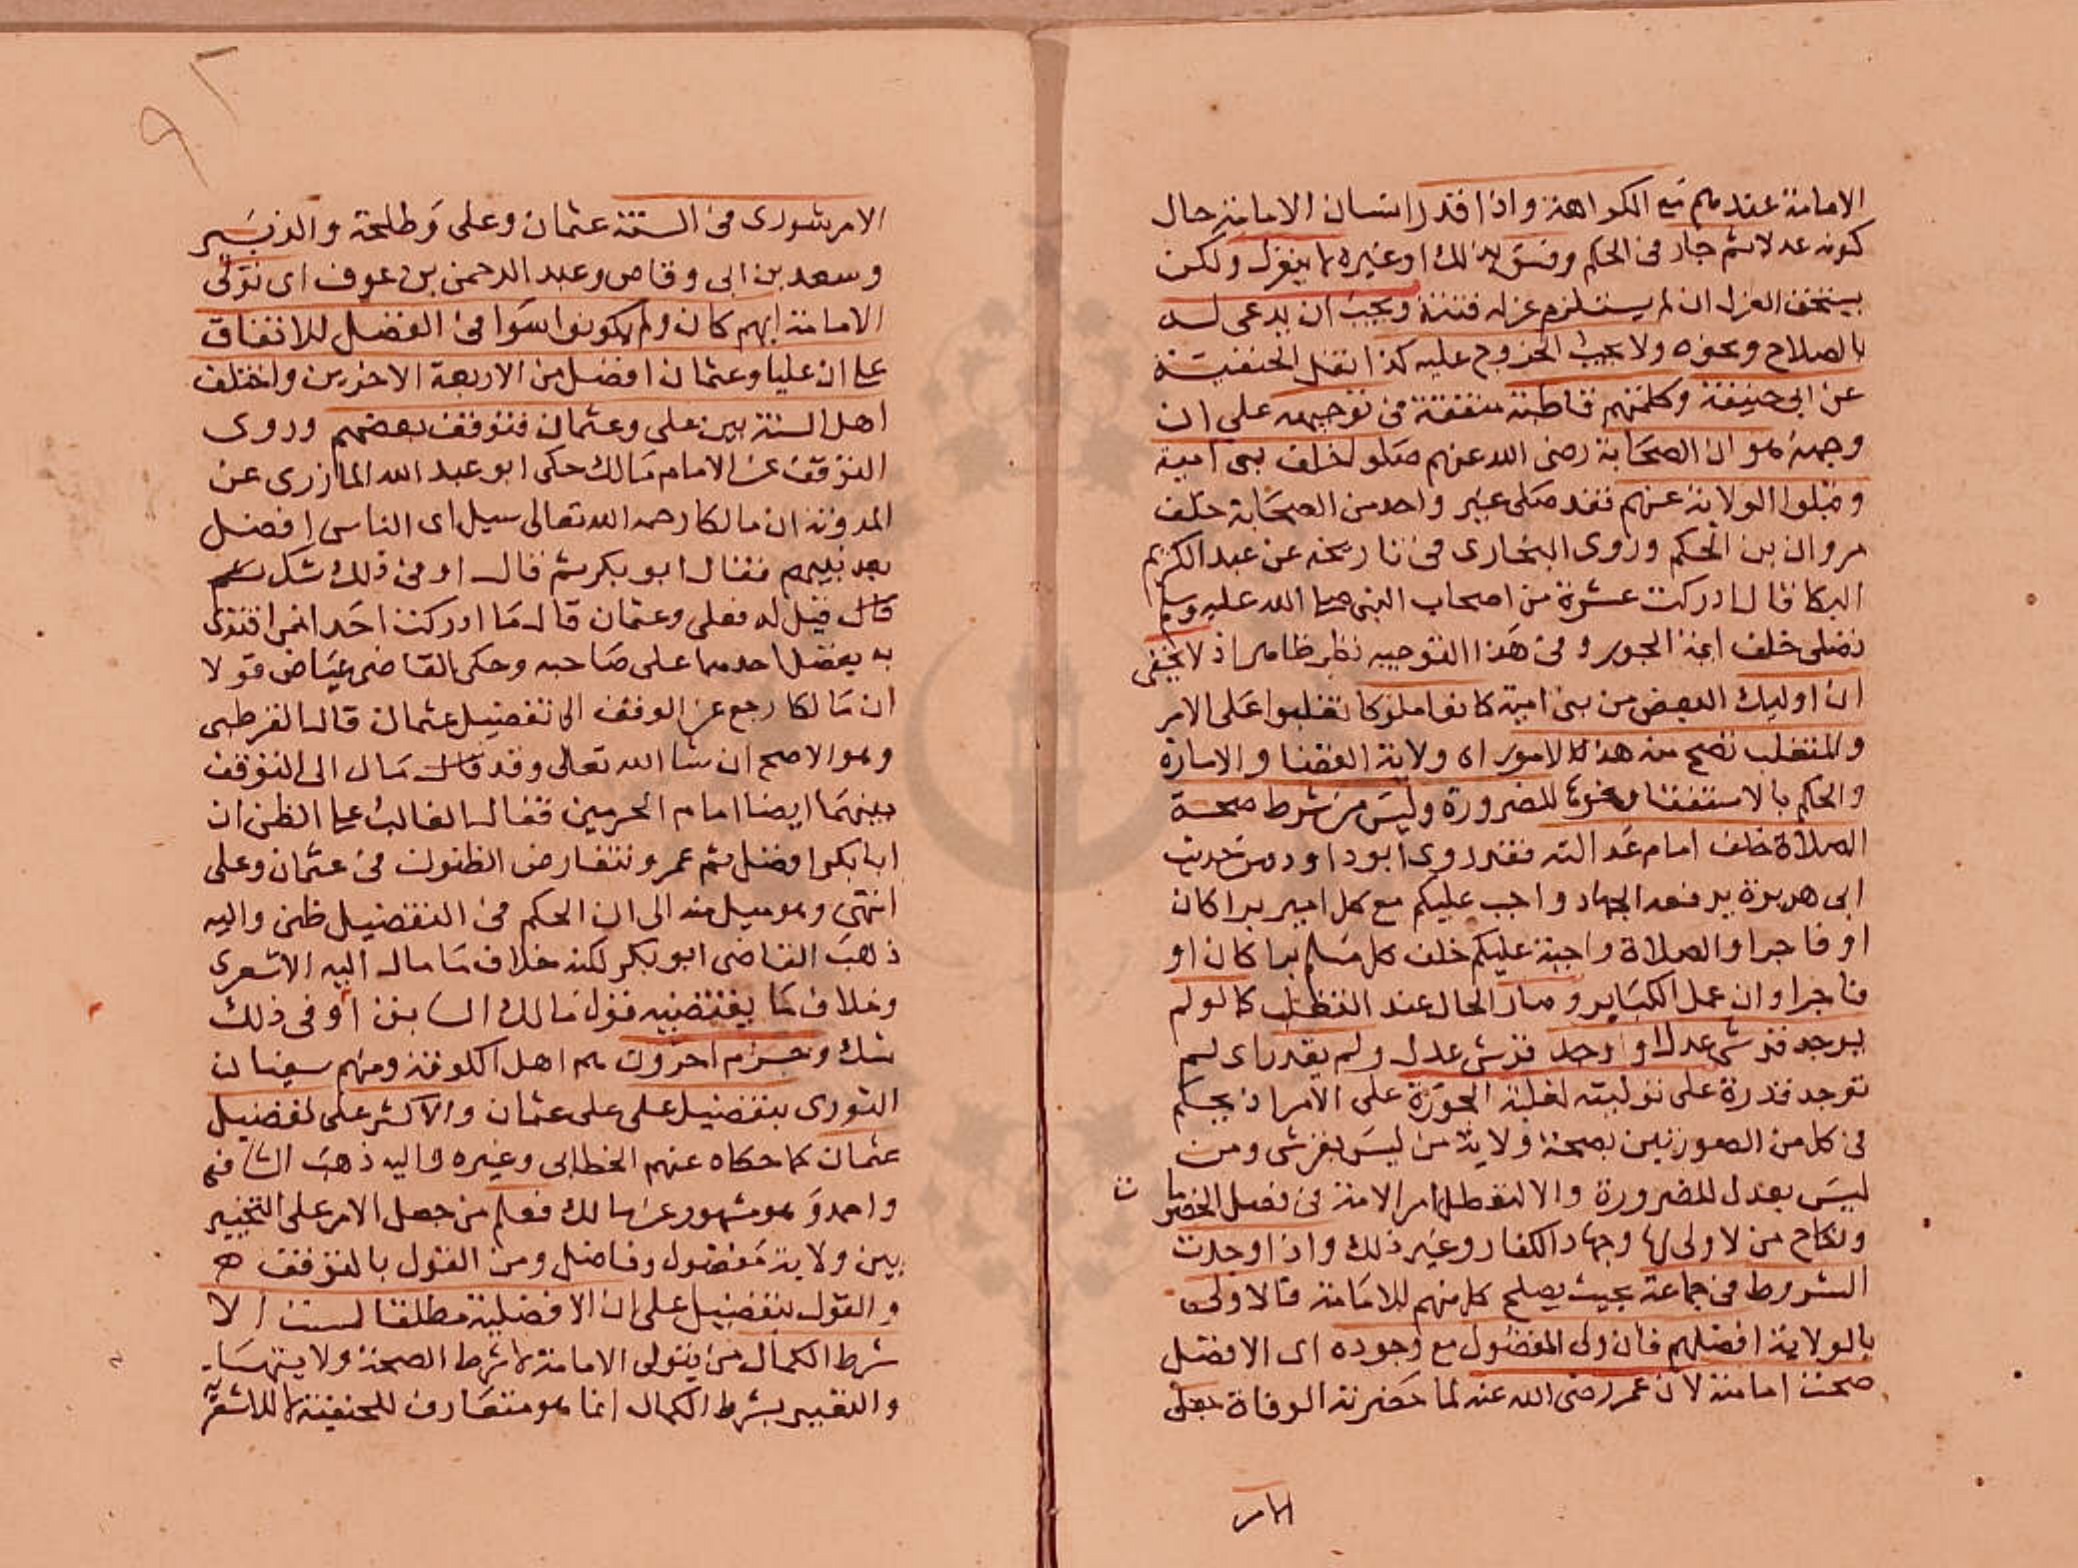 الامامة عندهم مع الكراهة واذا قلد انسان الامامة حال
كونه عدلا ثم جار في الحكم وفسق بذلك او غيره لا ينعزل ولكن
يستحق العزل ان لم يستلزم عزله فتنة ويجب ان يدعى له
بالصلاح ونحوه ولا يجب الخروج عليه كذا نقل الحنفية
عن ابي حنيفة وكلمتهم قاطبة متفقة في توجيهه على ان
وجهه هو ان الصحابة رضى الله عنهم صلوا خلف بنى امية
وقبلوا الولاية عنهم فقد صلى غير واحد من الصحابة خلف
مروان بن الحكم وروى البخارى في تاريخه عن عبد الكريم
البكا قال ادركت عشرة من اصحاب النبي صلى الله عليه وسلم
تصلى خلف ايمة الجور وفي هذا التوجيه نظر ظاهر اذ لا يخفى
ان اوليك البعض من بنى امية كانوا ملوكا تغلبوا على الامر
والمتغلب تصح منه هذه الامور اى ولاية القضا والامارة
والحكم بالاستفتا ونحوها للضرورة وليس من شرط صحة
الصلاة خلف امام عدالته فقد روى ابو داود من حديث
ابى هريرة يرفعه الجهاد واجب عليكم مع كل امير برا كان
او فاجرا والصلاة واجبة عليكم خلف كل مسلم برا كان او
فاجرا وان عمل الكباير وصار الحال عند التغلب كما لو لم
يوجد قرشى عدل او وجد قرشى عدل ولم يقدر اى لم
توجد قدرة على توليته لغلبة الجورة على الامر اذ يحكم
في كل من الصورتين بصحة ولاية من ليس بقرشى ومن
ليس بعدل للضرورة والا لتعطل امر الامة في فصل الخصومات
ونكاح من لا ولى لها وجهاد الكفار وغير ذلك واذا وجدت
الشروط في جماعة بحيث يصلح كل منهم للامامة فالاولى
بالولاية افضلهم فان ولى المفضول مع وجوده اى الافضل
صحت امامته لان عمر رضى الله عنه لما حضرته الوفاة جعل
الامر
٩٢
الامر شورى في الستة عثمان وعلى وطلحة والزبير
وسعد بن ابى وقاص وعبد الرحمن بن عوف اى تولى
الامامة ايهم كان ولم يكونوا سوا في الفضل للاتفاق
على ان عليا وعثمان افضل من الاربعة الاخرين واختلف
اهل السنة بين على وعثمان فتوقف بعضهم وروى
التوقف عن الامام مالك حكى ابو عبد الله المازرى عن
المدونة ان مالكا رحمه الله تعالى سيل اى الناس افضل
بعد نبيهم فقال ابو بكر ثم قال او في ذلك شك
قال قيل له فعلى وعثمان قال ما ادركت احدا ممن اقتدى
به يفضل احدهما على صاحبه وحكى القاضى عياض قولا
ان مالكا رجع عن الوقف الى تفضيل عثمان قال القرطبى
وهو الاصح ان شا الله تعالى وقد قال مال الى التوقف
بينهما ايضا امام الحرمين فقال الغالب على الظن ان
ابا بكر افضل ثم عمر وتتعارض الظنون في عثمان وعلى
انتهى وهو ميل منه الى ان الحكم في التفضيل ظنى واليه
ذهب القاضى ابو بكر لكنه خلاف ما مال اليه الاشعرى
وخلاف ما يقتضيه قول مالك السابق او في ذلك
شك وجزم اخرون هم اهل الكوفة ومنهم سفيان
الثورى بتفضيل على على عثمان والاكثر على تفضيل
عثمان كما حكاه عنهم الخطابى وغيره واليه ذهب الشافعى
واحمد وهو مشهور عن مالك فعلم من جعل الامر على التخيير
بين ولاية مفضول وفاضل ومن القول بالتوقف
والقول بتفضيل على ان الافضلية مطلقا ليست الا
شرط الكمال من يتولى الامامة لا شرط الصحة ولا يتهيا
والتعبير بشرط الكمال انما هو متعارف للحنفية لا للاشعرية